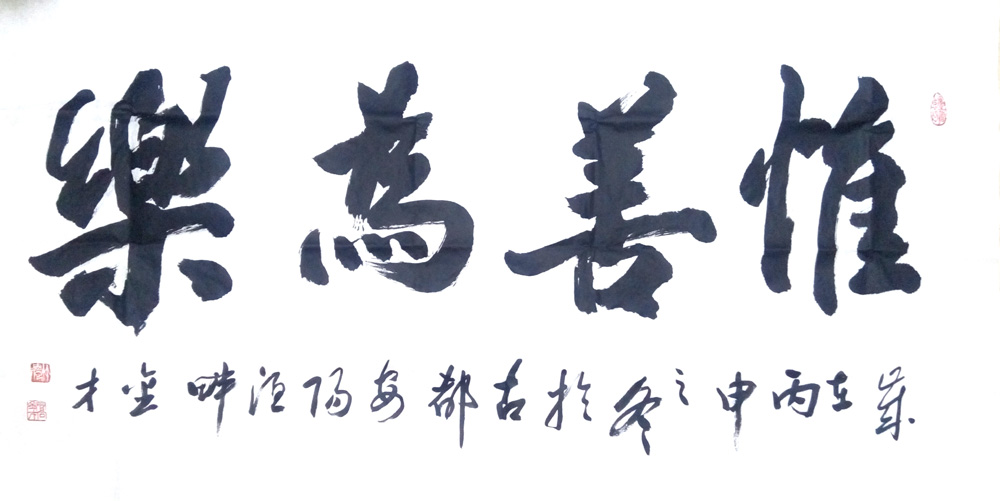 惟善為樂
歲在丙申之冬於古都安陽洹畔金才